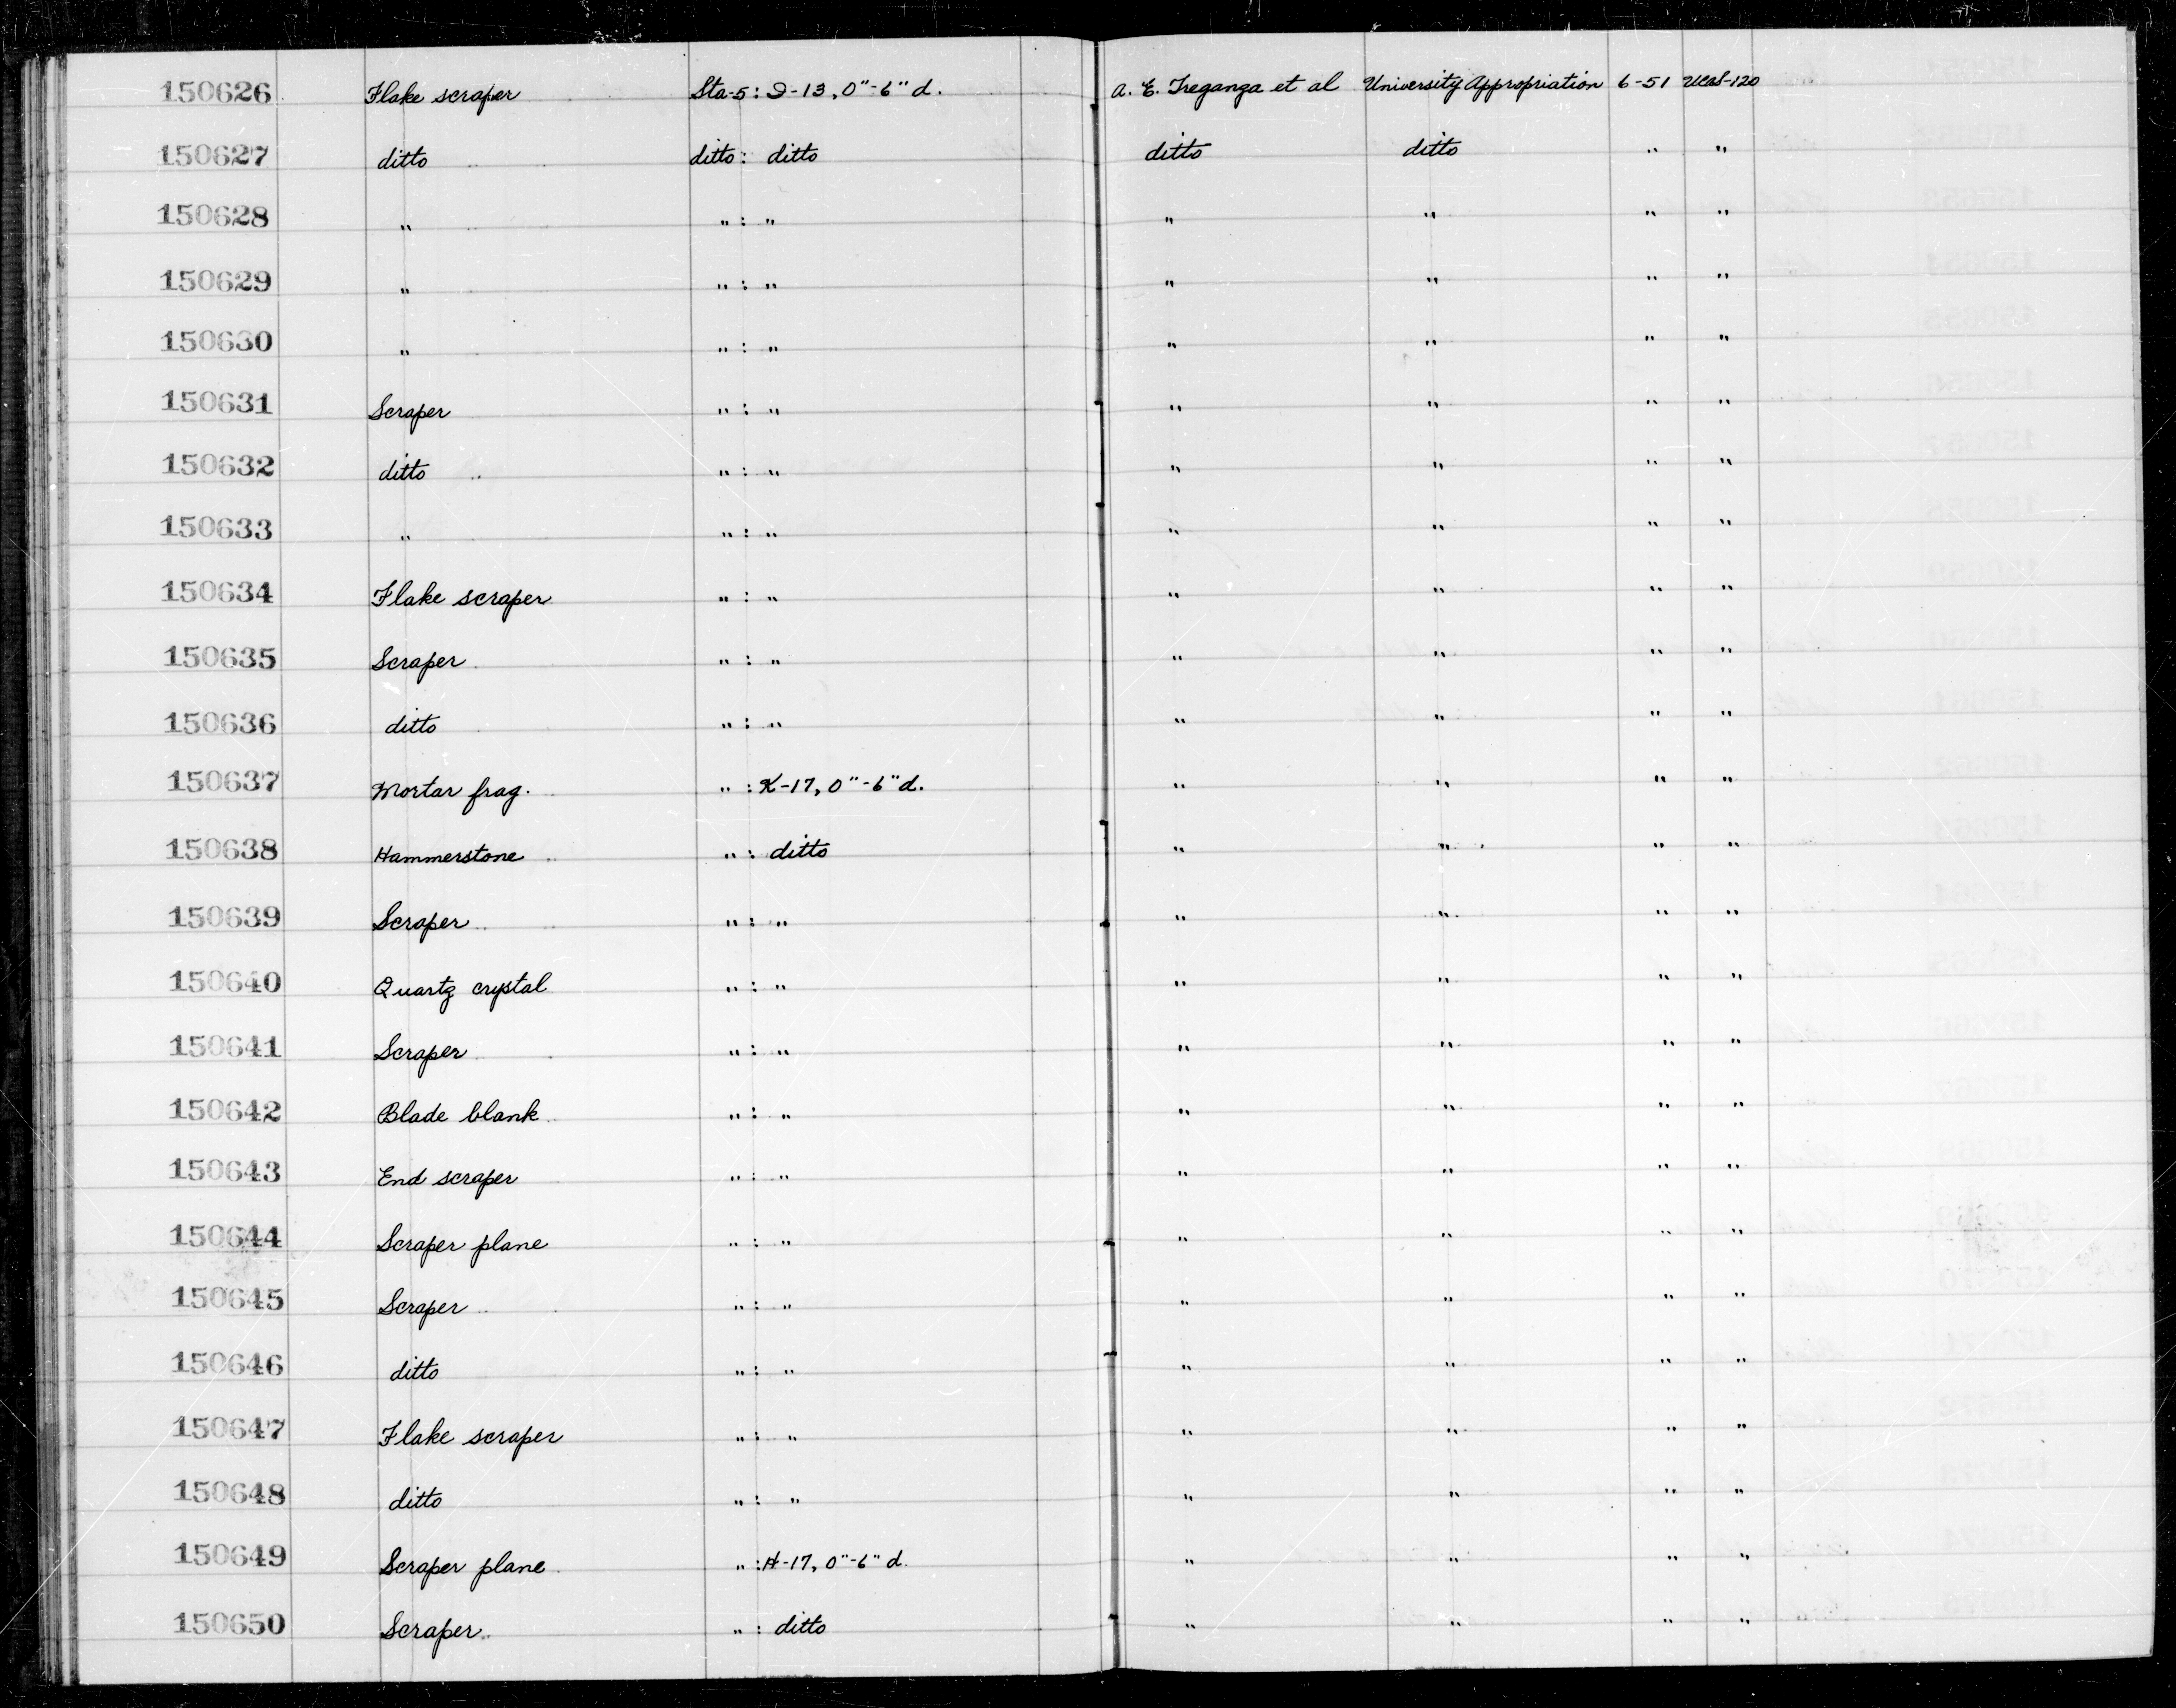 150626 Flake scraper Sta-5: I-13, 0"-6" d. A. E. Treganza et al University Appropriation 6-51 UCAS-120
150627 ditto ditto: ditto ditto ditto " "
150628 " " : " " " " "
150629 " " : " " " " "
150630 " " : " " " " "
150631 Scraper " : " " " " "
150632 ditto " : " " " " "
150633 " " : " " " " "
150634 Flake scraper " : " " " " "
150635 Scraper " : " " " " "
150636 ditto " : " " " " "
150637 Mortar frag. " : K-17, 0"-6" d. " " " "
150638 Hammerstone " : ditto " " " "
150639 Scraper " : " " " " "
150640 Quartz crystal " : " " " " "
150641 Scraper " : " " " " "
150642 Blade blank " : " " " " "
150643 End scraper " : " " " " "
150644 Scraper plane " : " " " " "
150645 Scraper " : " " " " "
150646 ditto " : " " " " "
150647 Flake scraper " : " " " " "
150648 ditto " : " " " " "
150649 Scraper plane " : H-17, 0"-6" d. " " " "
150650 Scraper " : ditto " " " "